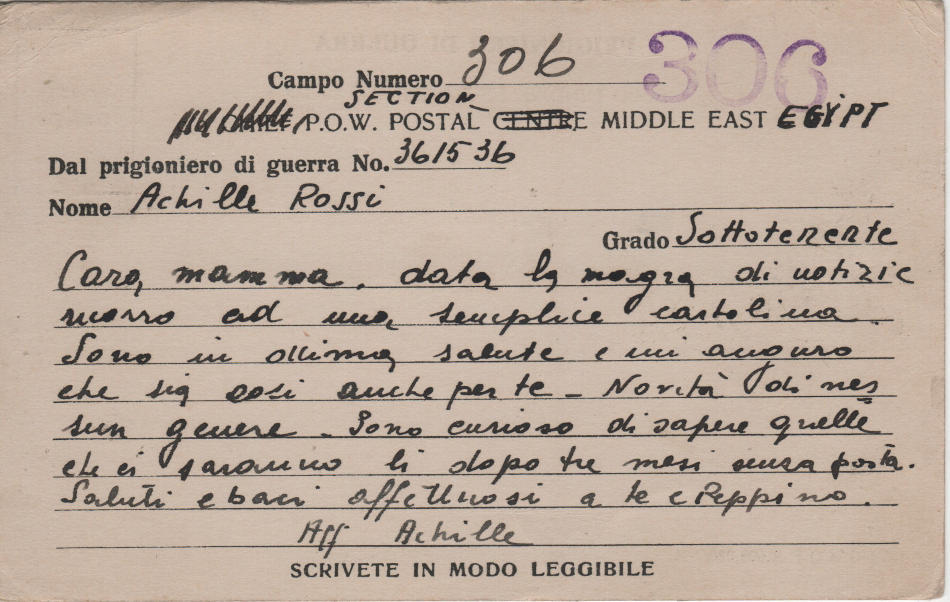 306
Campo Numero 306
SECTION
P.O.W. POSTAL CENTRE MIDDLE EAST EGYPT
Dal prigioniero di guerra No. 361536
Nome Achille Rossi
Grado Sottotenente
Cara mamma, data la magra di notizie
ricorro ad una semplice cartolina.
Sono in ottima salute e mi auguro
che sia così anche per te - Novità di nes
sun genere - Sono curioso di sapere quelle
che ci saranno lì dopo tre mesi senza posta.
Saluti e baci affettuosi a te e Peppino.
Aff Achille
SCRIVETE IN MODO LEGGIBILE